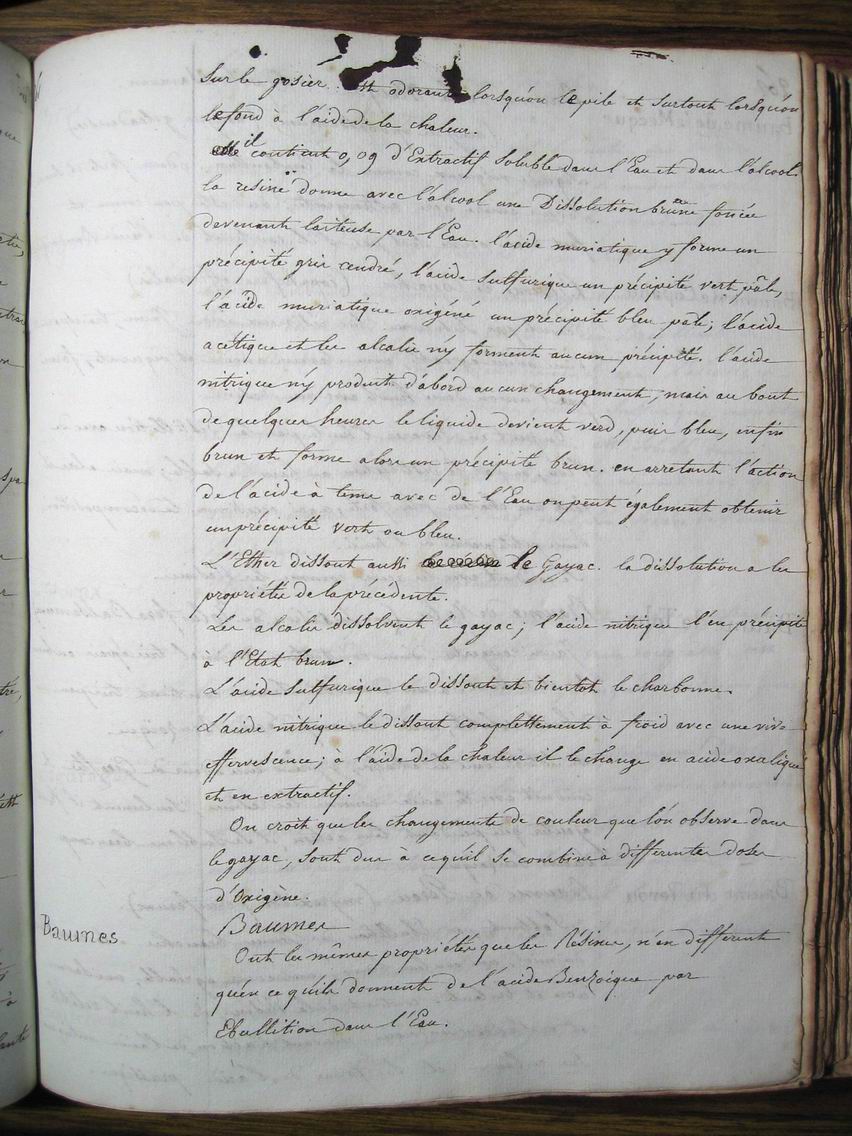 Sur le gosier. est odorante lorsqu'on le pile et surtout lorsqu'on
le fond à l'aide de la chaleur.
il contient 0,09 d'Extractif soluble dans l'Eau et dans l'alcool.
la resine donne avec l'alcool une Dissolution brune foncée
devenant laiteuse par l'Eau. l'acide muriatique y forme un
précipité gris cendré, l'acide sulfurique un précipité vert pâle,
l'acide muriatique oxigéné un précipité bleu pâle; l'acide
acétique et les alcalis n'y forment aucun précipité. l'acide
nitrique n'y produit d'abord aucun changement, mais au bout
de quelques heures le liquide devient verd, puis bleu, enfin
brun et forme alors un précipité brun. en arretant l'action
de l'acide à tems avec de l'Eau on peut également obtenir
un précipité vert ou bleu.
L'Ether dissout aussi le Gayac. la dissolution a les
propriétés de la précédente.
Les alcalis dissolvent le gayac; l'acide nitrique l'en précipite
à l'Etat brun.
L'acide Sulfurique le dissout et bientot le charbonne.
L'acide nitrique le dissout complettement à froid avec une vive
effervescence; à l'aide de la chaleur il le change en acide oxalique
et en extractif.
On croit que les changements de couleur que l'on observe dans
le gayac, sont dus à ce qu'il se combine à differentes doses
d'Oxigène.
Baumes
Baumes
Ont les mêmes propriétés que les Résines, n'en different
qu'en ce qu'ils donnent de l'acide Benzoïque par
Ebullition dans l'Eau.